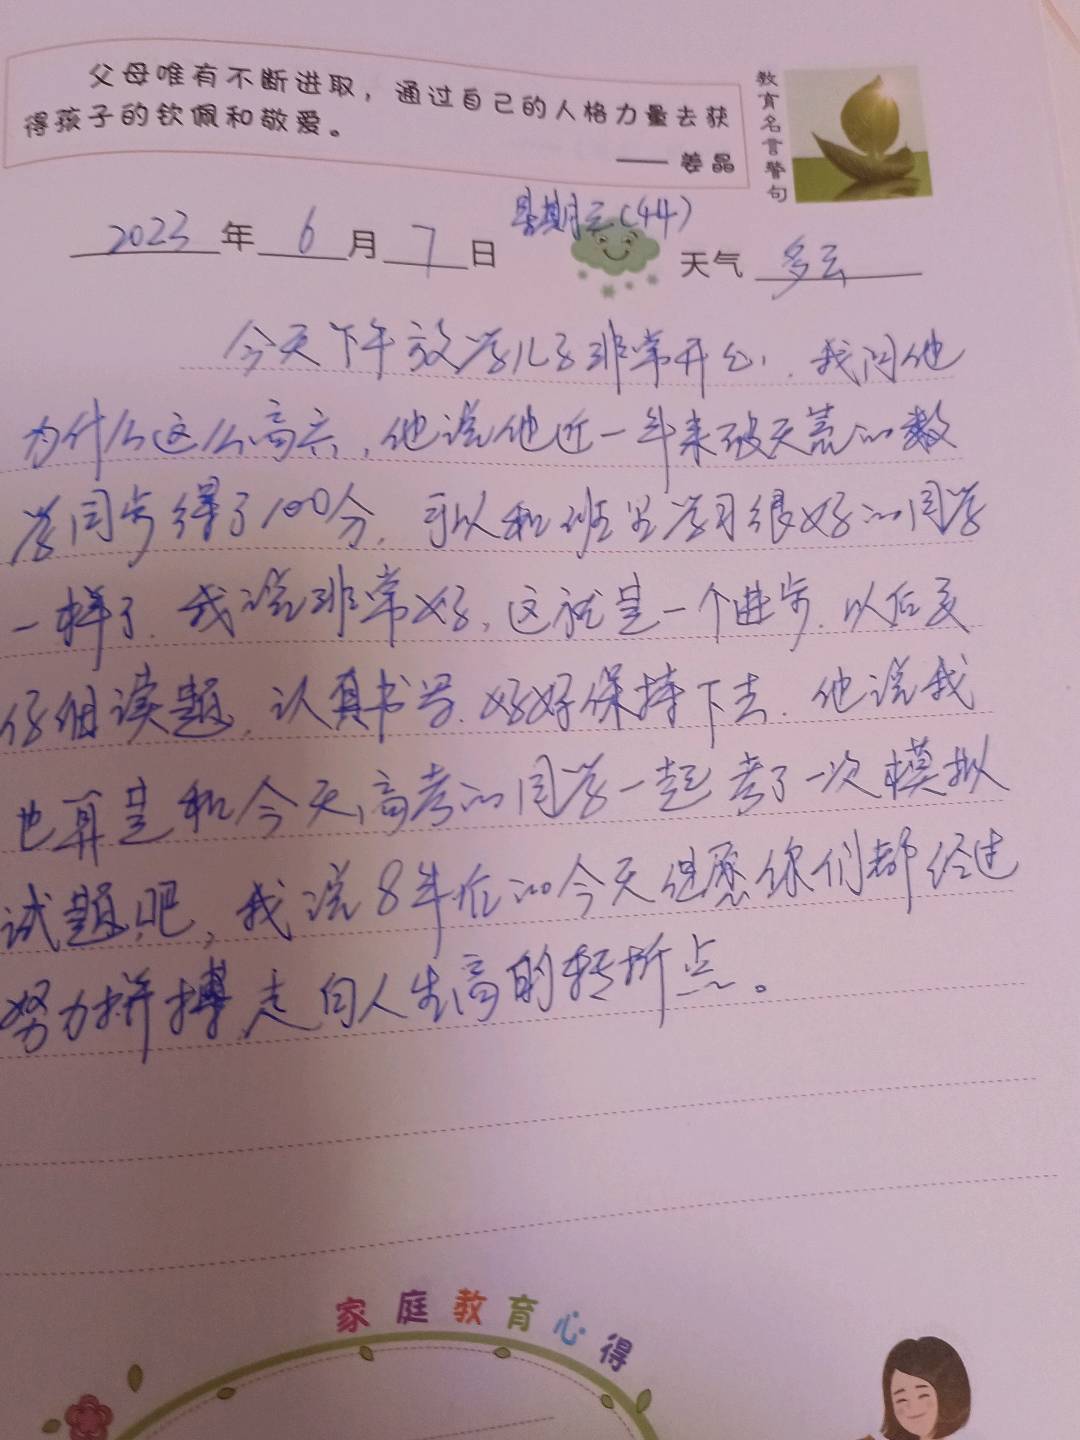 父母唯有不断进取，通过自己的人格力量去获
得孩子的钦佩和敬爱。
—— 姜晶
教育名言警句
星期三(44)
2023年6月7日 天气 多云
今天下午放学儿子非常开心，我问他
为什么这么高兴，他说他近一年来破天荒的数
学同步得了100分，可以和班里学习很好的同学
一样了。我说非常好，这就是一个进步，以后要
仔细读题，认真书写，好好保持下去。他说我
也算是和今天高考的同学一起考了一次模拟
试题吧，我说8年后的今天但愿你们都经过
努力拼搏，走向人生高的转折点。
家庭教育心得